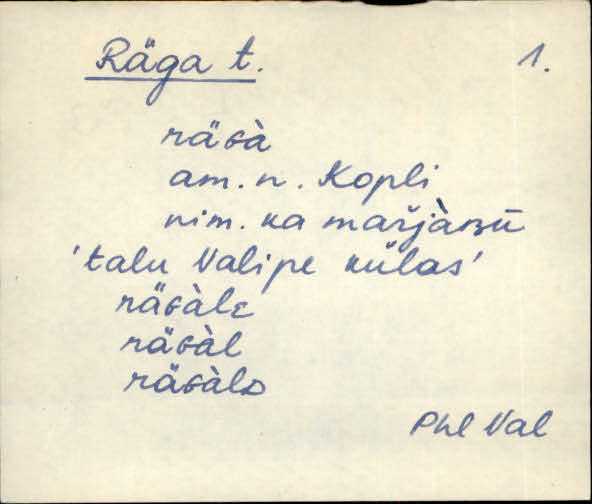 Räga t. 1.
räɢà
am. n. Kopli
nim. ka
'talu Valipe külas'
räɢàle
räɢàl
räɢàlᴅ
Phl Val